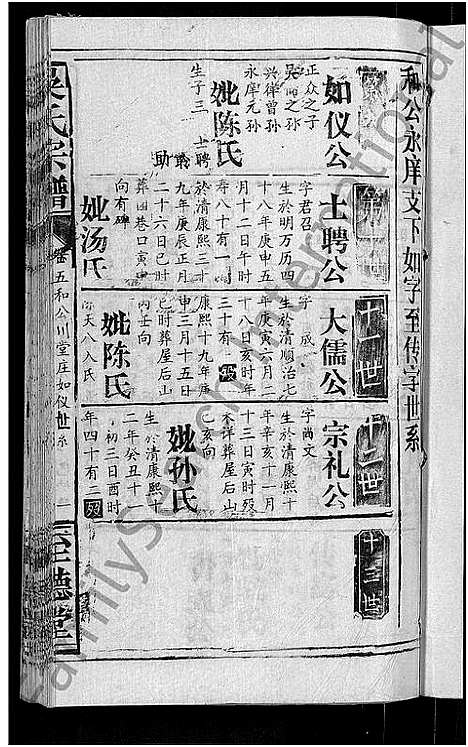 和公永庠支下如字至传字世系
如仪公
正众之子
之孙
兴律曾孙
永庠元孙
妣陈氏
生子三
士聘
助
第十世
士聘公
字君召
生於明万历四
十八年庚申五
月十二日午时
寿八十有一
於清康熙三十
九年庚辰正月
二十六日巳时
葬面巷口寅申
向有碑
妣汤氏
十一世
大儒公
字成
生於清顺治七
年庚寅六月二
十八日亥时年
三十有一殁
康熙十九年庚
申三月十五日
巳时葬屋后山
丙壬向
妣陈氏
天八入氏
十二世
宗礼公
字尚文
生於清康熙十
年辛亥十一月
十三日寅时殁
不详葬屋后山
亥向
妣孙氏
生於清康熙十
二年癸丑十
初三日酉时
年四十有二殁
十三世
吴氏宗谱
卷五和公川堂庄如仪世系
一
至德堂
FamilySearch International